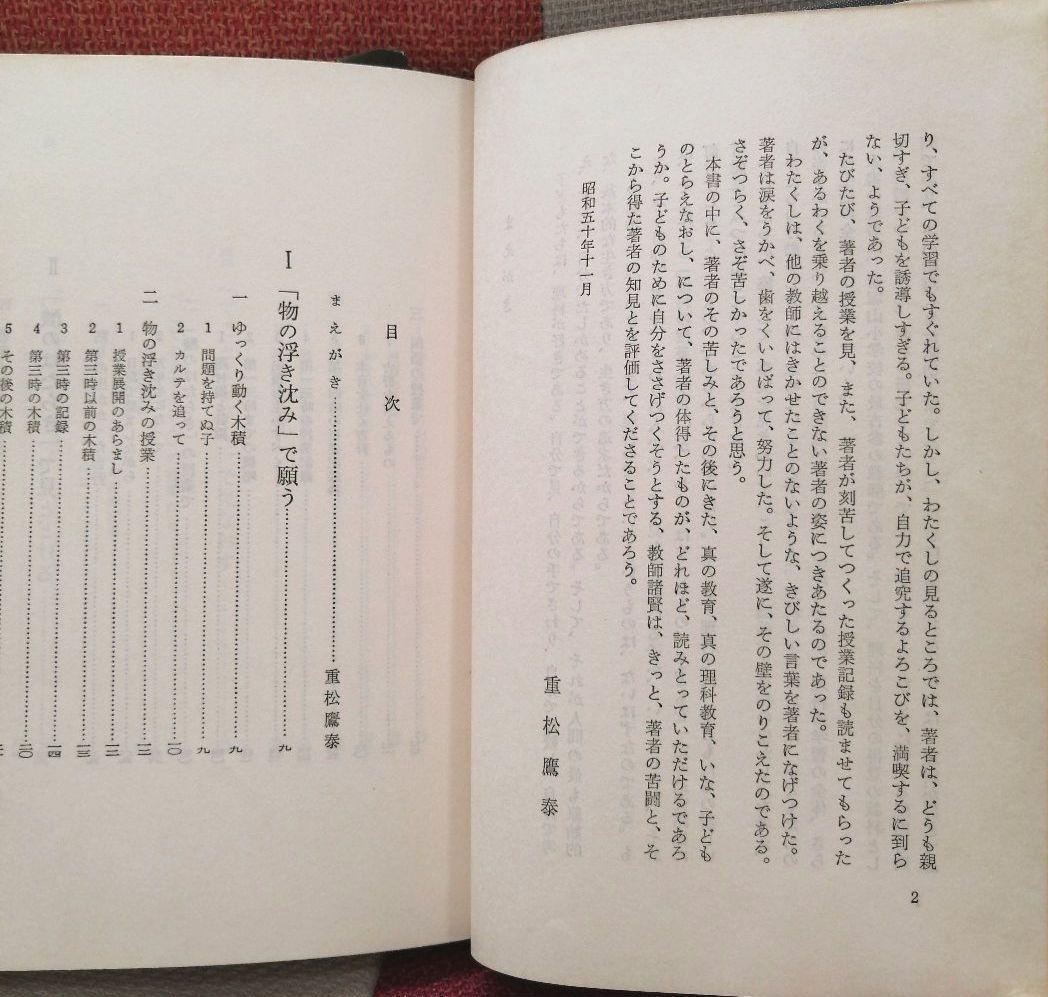 り、すべての学習でもすぐれていた。しかし、わたくしの見るところでは、著者は、どうも親
切すぎ、子どもを誘導しすぎる。子どもたちが、自力で追究するよろこびを、満喫するに到ら
ない、ようであった。
たびたび、著者の授業を見、また、著者が刻苦してつくった授業記録も読ませてもらった
が、あるわくを乗り越えることのできない著者の姿につきあたるのであった。
わたくしは、他の教師にはきかせたことのないような、きびしい言葉を著者になげつけた。
著者は涙をうかべ、歯をくいしばって、努力した。そして遂に、その壁をのりこえたのである。
さぞつらく、さぞ苦しかったであろうと思う。
本書の中に、著者のその苦しみと、その後にきた、真の教育、真の理科教育、いな、子ども
のとらえなおし、について、著者の体得したものが、どれほど、読みとっていただけるであろ
うか。子どものために自分をささげつくそうとする、教師諸賢は、きっと、著者の苦闘と、そ
こから得た著者の知見とを評価してくださることであろう。
昭和五十年十一月
重松鷹泰
2
目次
まえがき……重松鷹泰
Ⅰ 「物の浮き沈み」で願う……九
一 ゆっくり動く木積……九
1 問題を持てぬ子……九
2 カルテを追って……一〇
二 物の浮き沈みの授業……一三
1 授業展開のあらまし……一三
2 第三時以前の木積……一三
3 第三時の記録……一四
4 第三時の木積……二〇
5 その後の木積……